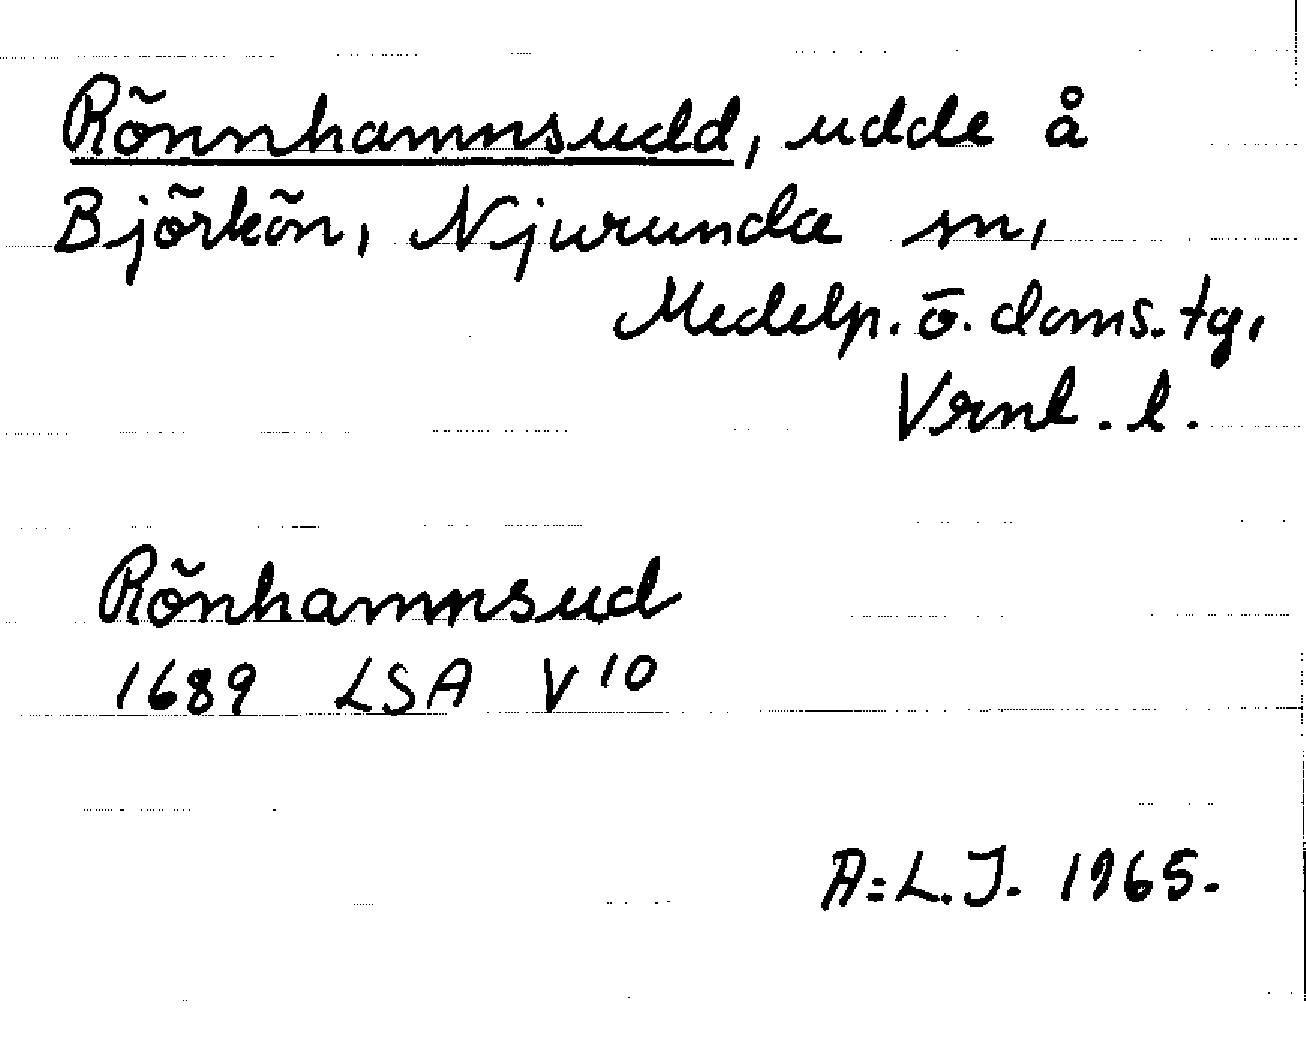 Rönnhamnsudd, udde å
Björkön, Njurunda sn,
Medelp. ö. doms. tg,
Vrnl. l.
Rönhamnsud
1689 LSA V 10
A=L.J. 1965.